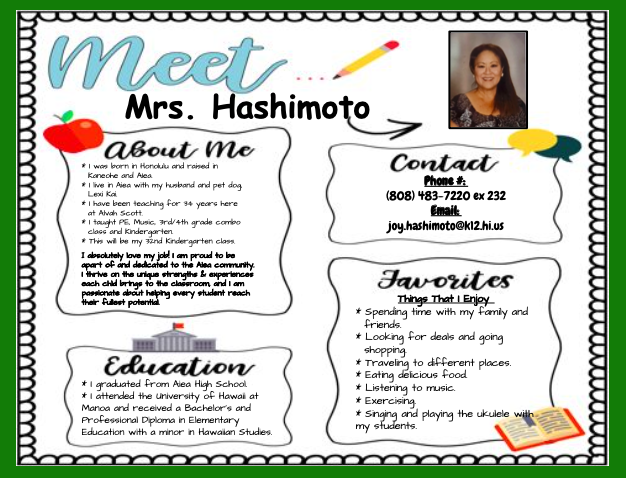 Meet
Mrs. Hashimoto
About Me
* I was born in Honolulu and raised in
Kaneohe and Aiea.
* I live in Aiea with my husband and pet dog,
Lexi Kai.
* I have been teaching for 34 years here
at Alvah Scott.
* I taught PE, Music, 3rd/4th grade combo
class and Kindergarten.
* This will be my 32nd Kindergarten class.
I absolutely love my job! I am proud to be
apart of and dedicated to the Aiea community.
I thrive on the unique strengths & experiences
each child brings to the classroom, and I am
passionate about helping every student reach
their fullest potential.
Education
* I graduated from Aiea High School.
* I attended the University of Hawaii at
Manoa and received a Bachelor's and
Professional Diploma in Elementary
Education with a minor in Hawaiian Studies.
Contact
Phone #:
(808) 483-7220 ex 232
Email:
joy.hashimoto@k12.hi.us
Favorites
Things That I Enjoy
* Spending time with my family and
friends.
* Looking for deals and going
shopping.
* Traveling to different places.
* Eating delicious food.
* Listening to music.
* Exercising.
* Singing and playing the ukulele with
my students.